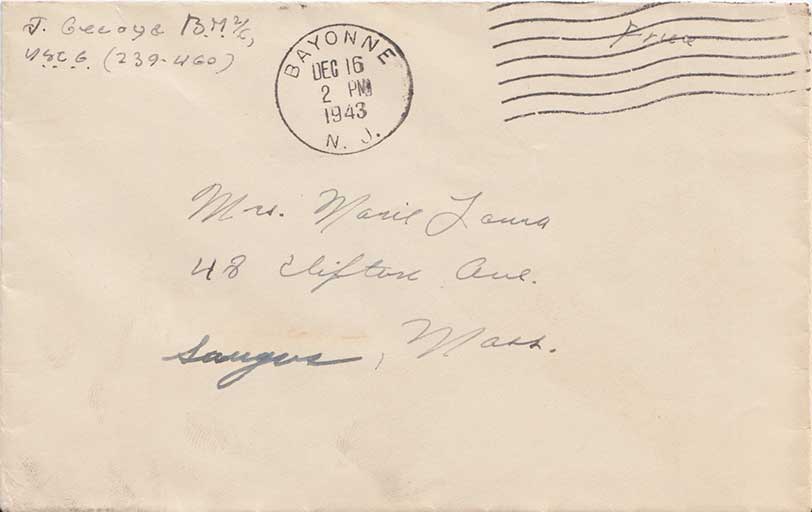 J. Gecoya B.M. 2/c,
USCG. (239-460)
BAYONNE
DEC 16
2 PM
1943
N. J.
Free
Mrs. Marie Laura
48 Clifton Ave.
Saugus, Mass.